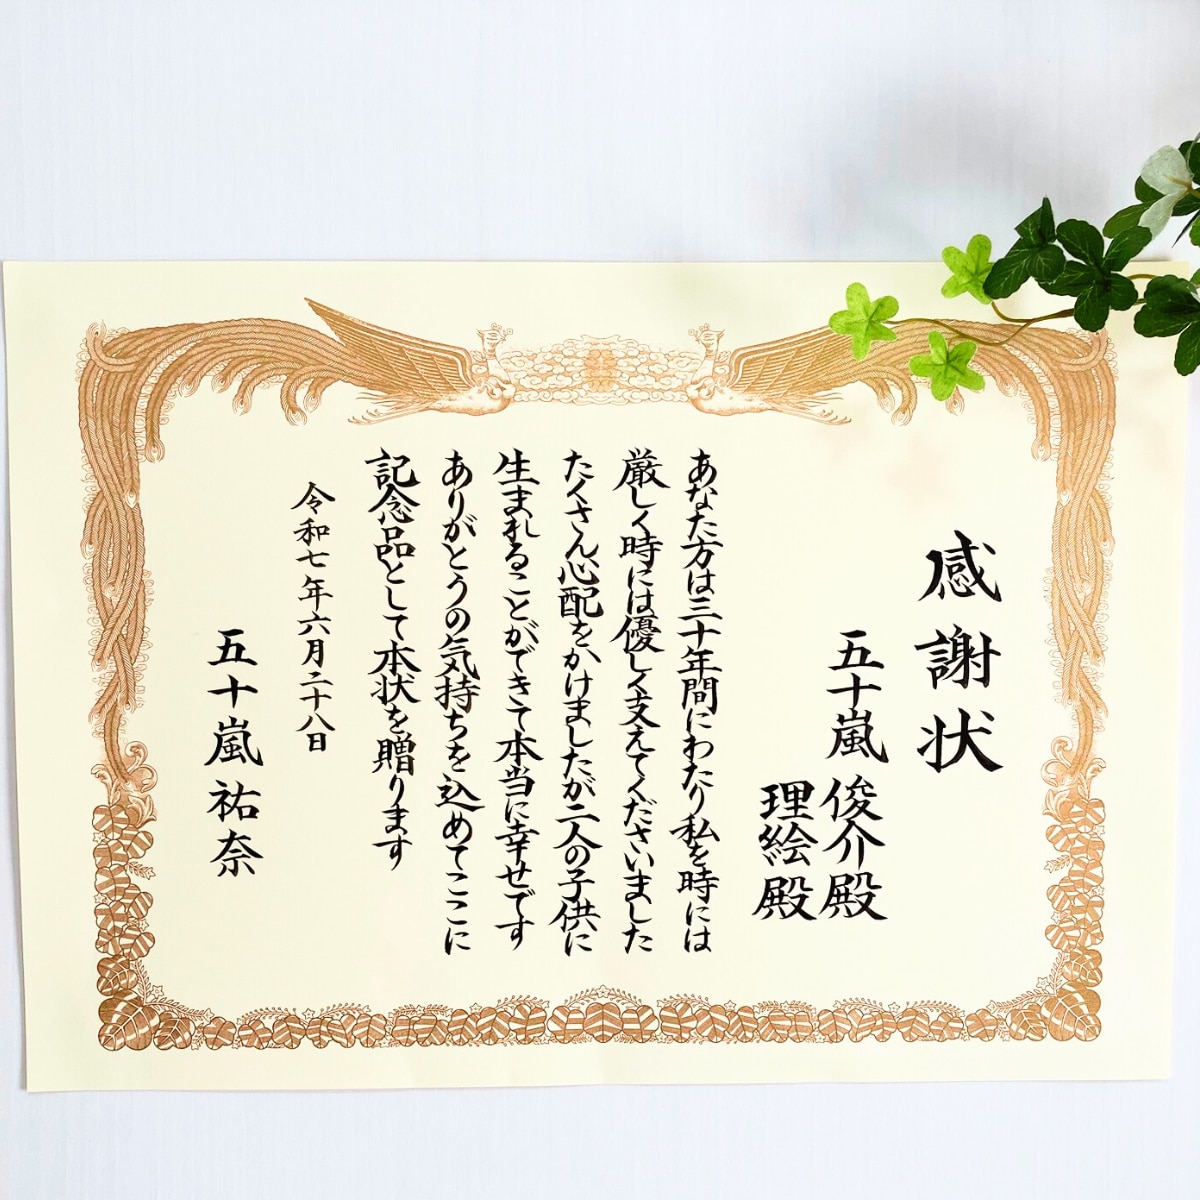 感謝状
五十嵐 俊介殿
理絵殿
あなた方は三十年間にわたり私を時には
厳しく時には優しく支えてくださいました
たくさん心配をかけましたが二人の子供に
生まれることができて本当に幸せです
ありがとうの気持ちを込めてここに
記念品として本状を贈ります
令和七年六月二十八日
五十嵐祐奈